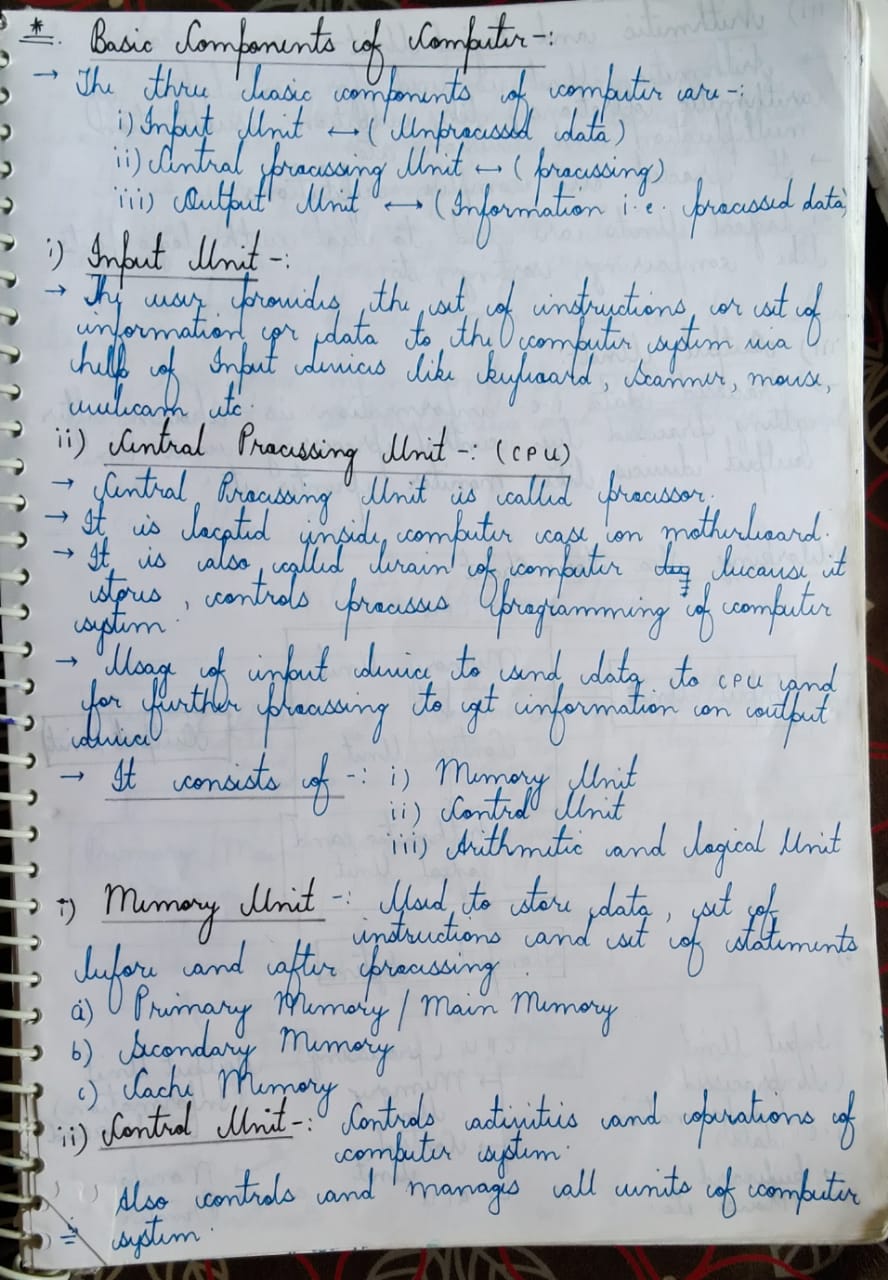 * Basic Components of Computer-:
→ The three basic components of computer are-:
i) Input Unit ↔ (Unprocessed data)
ii) Central processing Unit ↔ (processing)
iii) Output Unit ↔ (Information i.e. processed data)
i) Input Unit-:
→ The user provides the set of instructions or set of
information or data to the computer system via
help of Input devices like keyboard, Scanner, mouse,
webcam etc.
ii) Central Processing Unit -: (CPU)
→ Central Processing Unit is called processor.
→ It is located inside computer case on motherboard.
→ It is also called brain of computer because it
stores, controls processes programming of computer
system.
→ Usage of input device to send data to CPU and
for further processing to get information on output
device
→ It consists of -: i) Memory Unit
ii) Control Unit
iii) Arithmetic and Logical Unit
i) Memory Unit -: Used to store data, set of
instructions and set of statements
before and after processing.
a) Primary Memory / Main Memory
b) Secondary Memory
c) Cache Memory
ii) Control Unit-: Controls activities and operations of
computer system.
Also controls and manages all units of computer
system.